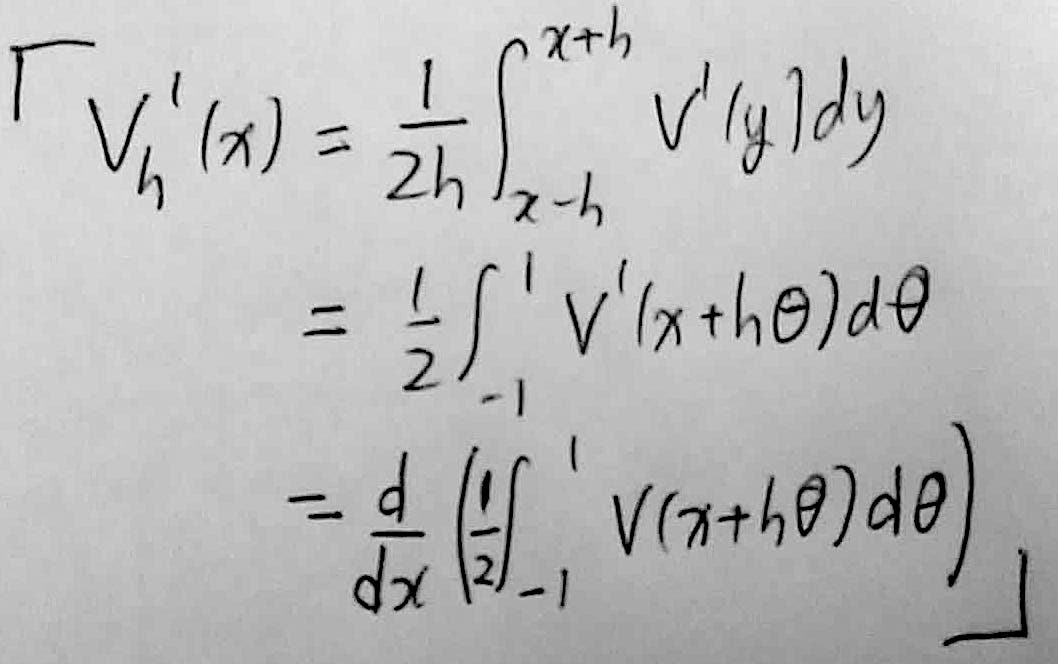 「 V_h'(x) = \frac{1}{2h} \int_{x-h}^{x+h} V'(y) dy
= \frac{1}{2} \int_{-1}^{1} V'(x+hθ) dθ
= \frac{d}{dx} \left( \frac{1}{2} \int_{-1}^{1} V(x+hθ) dθ \right) 」